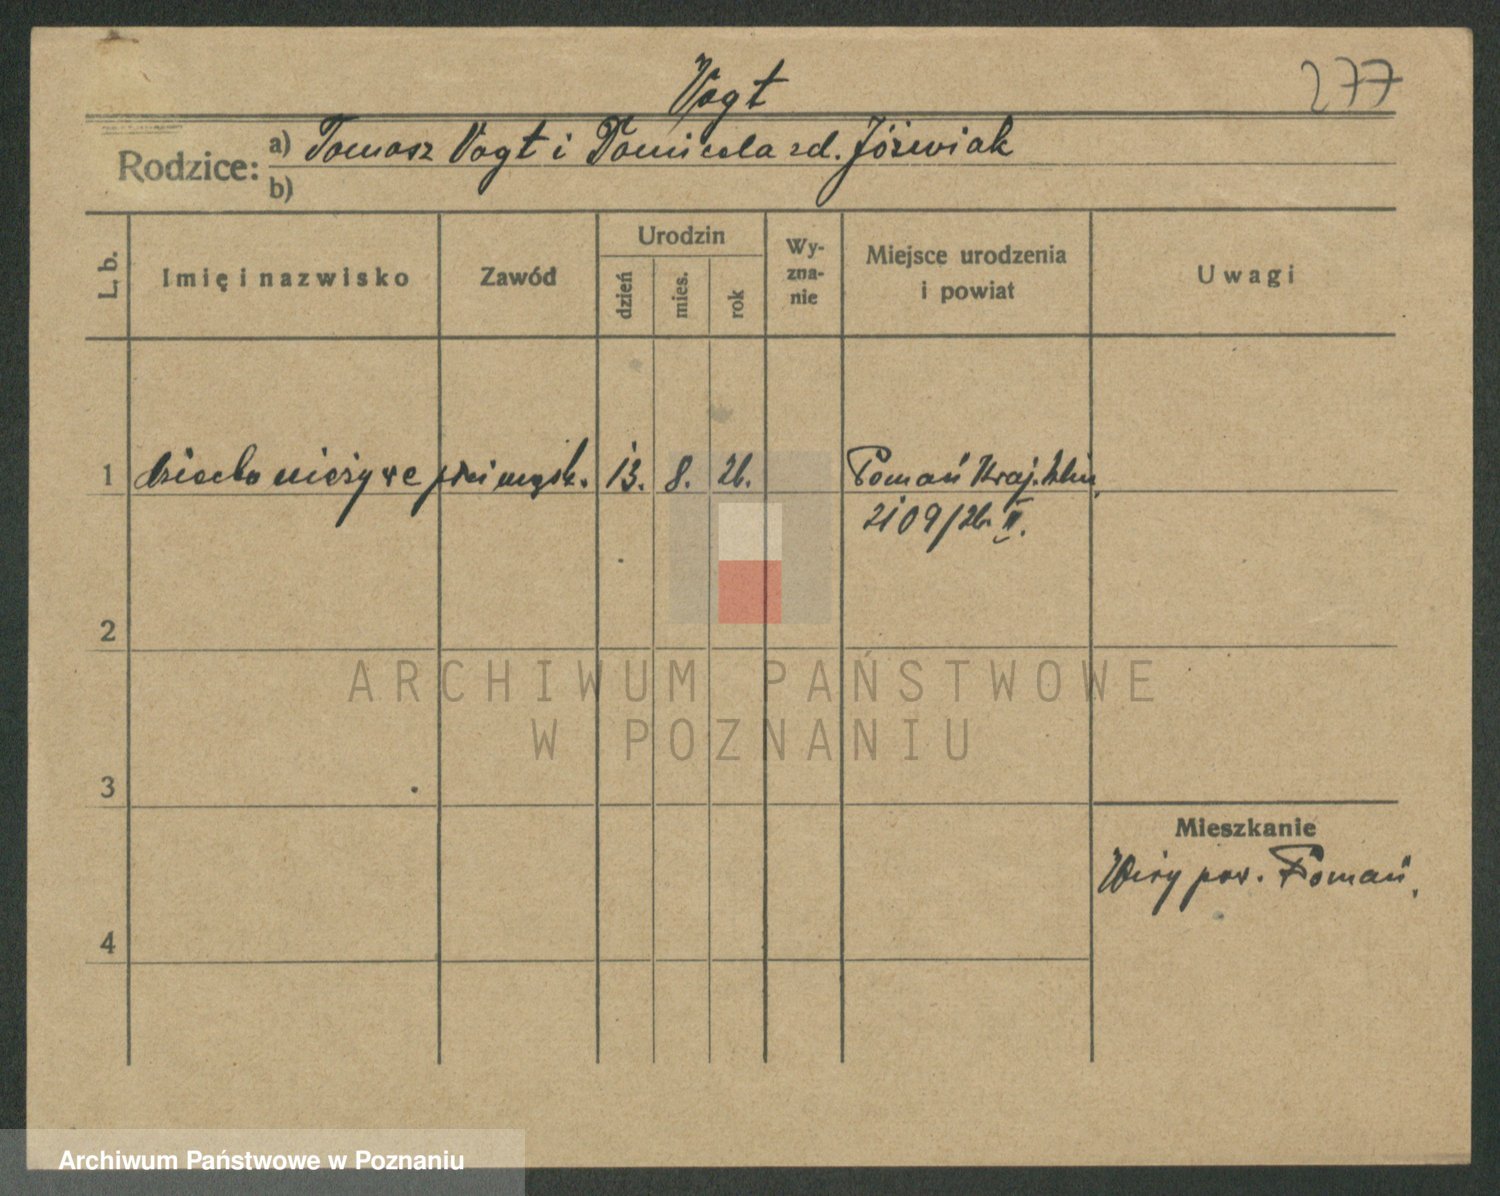 Vogt
277
Rodzice:
a) Tomasz Vogt i zd. Jóźwiak
b)
L. b.
Imię i nazwisko
Zawód
Urodzin
dzień
mies.
rok
Wy-
zna-
nie
Miejsce urodzenia
i powiat
Uwagi
1 dziecko nieżywe płci męsk. 13. 8. 26. Poznań Kraj. Klin.
2109/26 II.
2
3
4
Mieszkanie
Wiry pow. Poznań.
ARCHIWUM PAŃSTWOWE
W POZNANIU
Archiwum Państwowe w Poznaniu